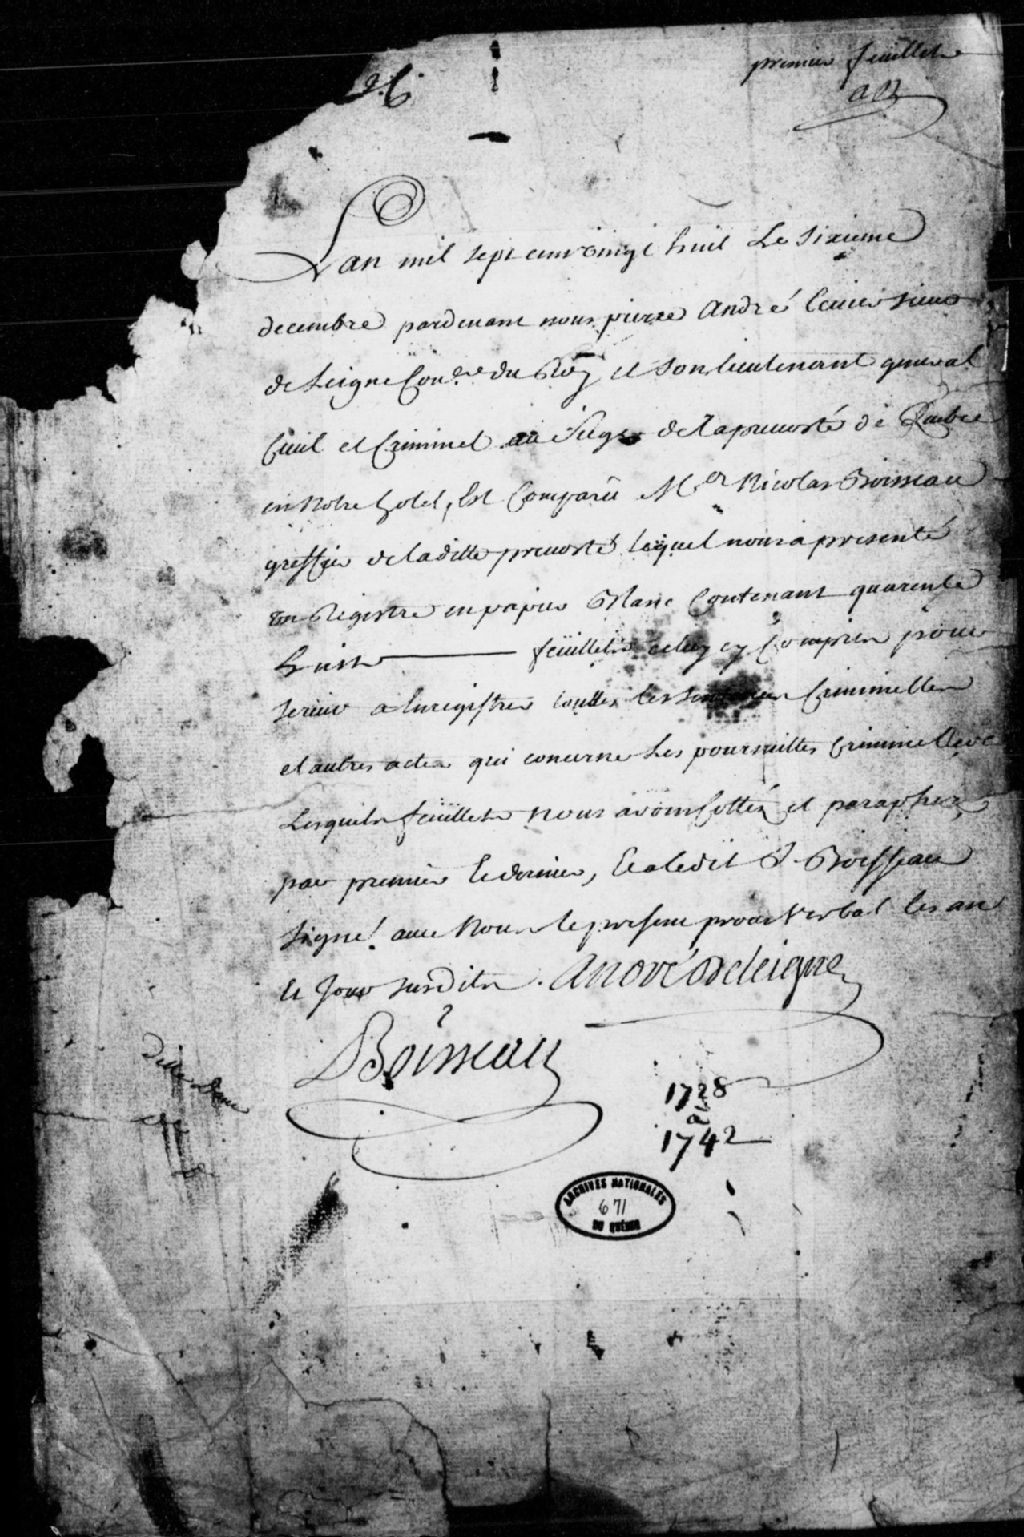 26.
premier feuillet
AD
Lan mil sept cent vingt huit Le Sixieme
decembre pardevant nous pierre André Ecuier sieur
de Leigne Coner du Roy et son lieutenant general
Civil et Criminel au siege de la prevosté de Quebec
en notre hotel, Est Comparû Mer Nicolas Boisseau
greffier de laditte prevosté lequel nous a presenté
un Registre en papier Blanc Contenant quarente
huit feüillets celuy cy Compris pour
servir a Enregistrer touttes les sentences Criminelles
et autres actes qui concerne Les poursuittes Criminelles
Lesquels feüillets nous avons Cottés et paraphez
par premier et dernier, Et a ledit S. Boisseau
signé avec Nous le present procés verbal les an
et Jour susdits. André de Leigne
Boisseau
1728
a
1742
ARCHIVES NATIONALES
671
DU QUÉBEC